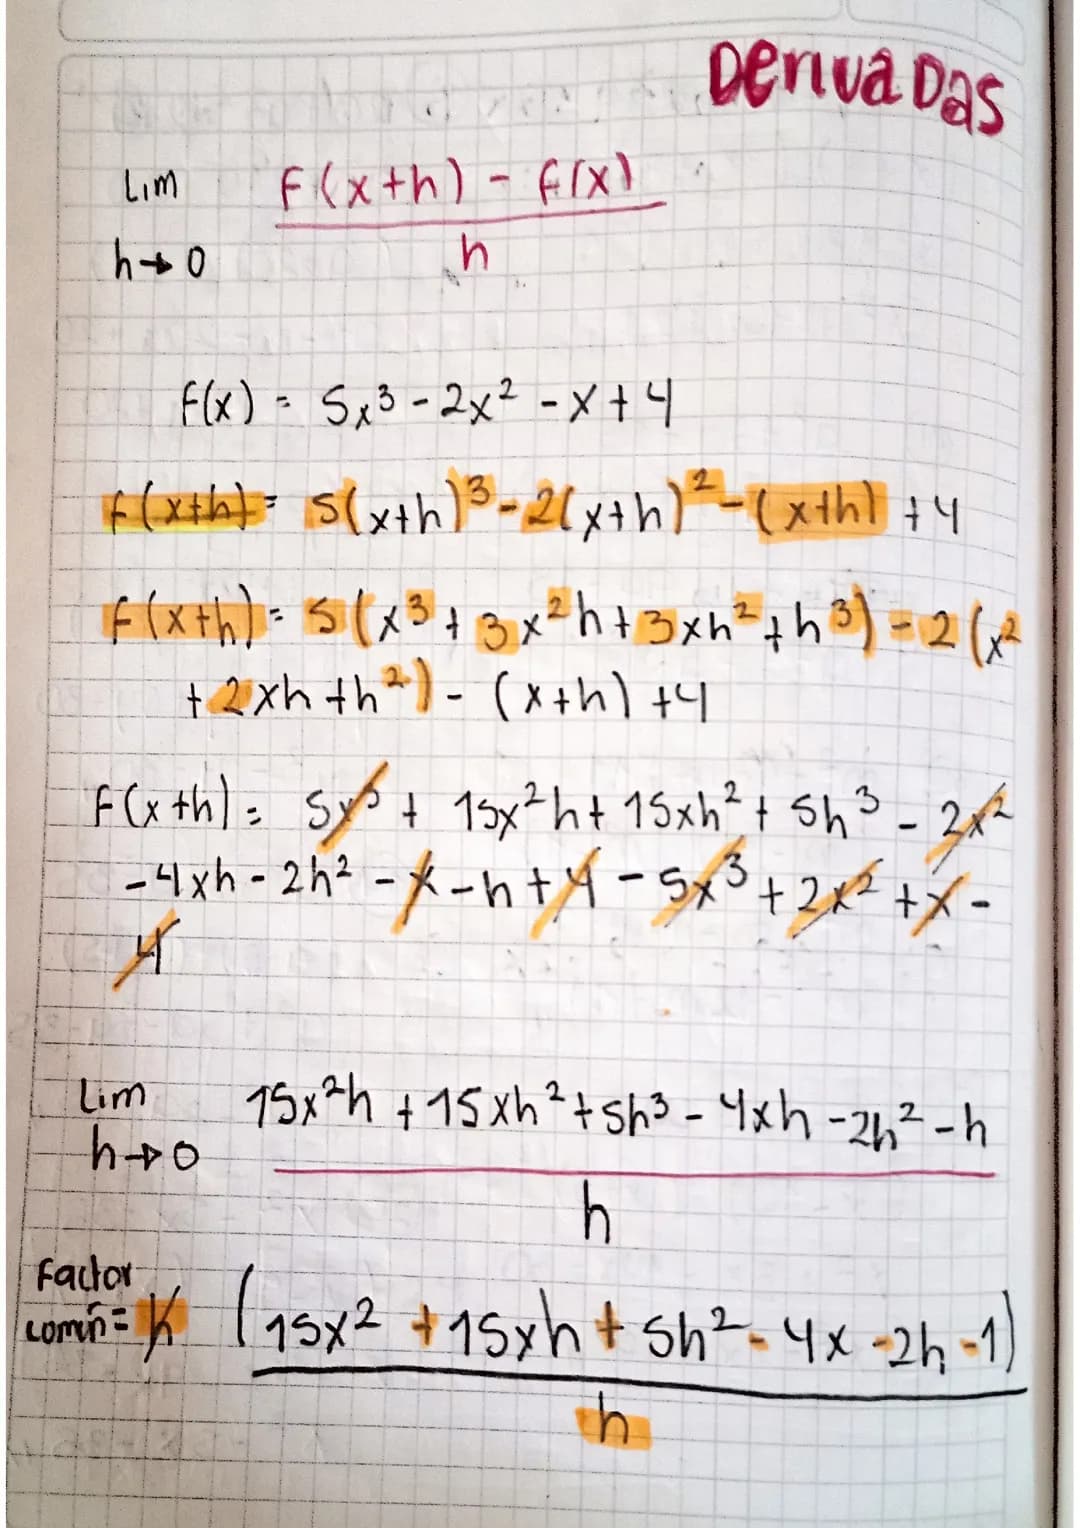 Derivadas
Lim F(x+h) - f(x)
h→0 h
F(x) = 5x³ - 2x² - x + 4
F(x+h) = 5(x+h)³ - 2(x+h)² - (x+h) + 4
F(x+h) = 5(x³ + 3x²h + 3xh² + h³) - 2(x²
+ 2xh + h²) - (x+h) + 4
F(x+h) = 5x³ + 15x²h + 15xh² + 5h³ - 2x²
- 4xh - 2h² - x - h + 4 - 5x³ + 2x² + x -
4
Lim 15x²h + 15xh² + 5h³ - 4xh - 2h² - h
h→0
h
Factor
común = h (15x² + 15xh + 5h² - 4x - 2h - 1)
h